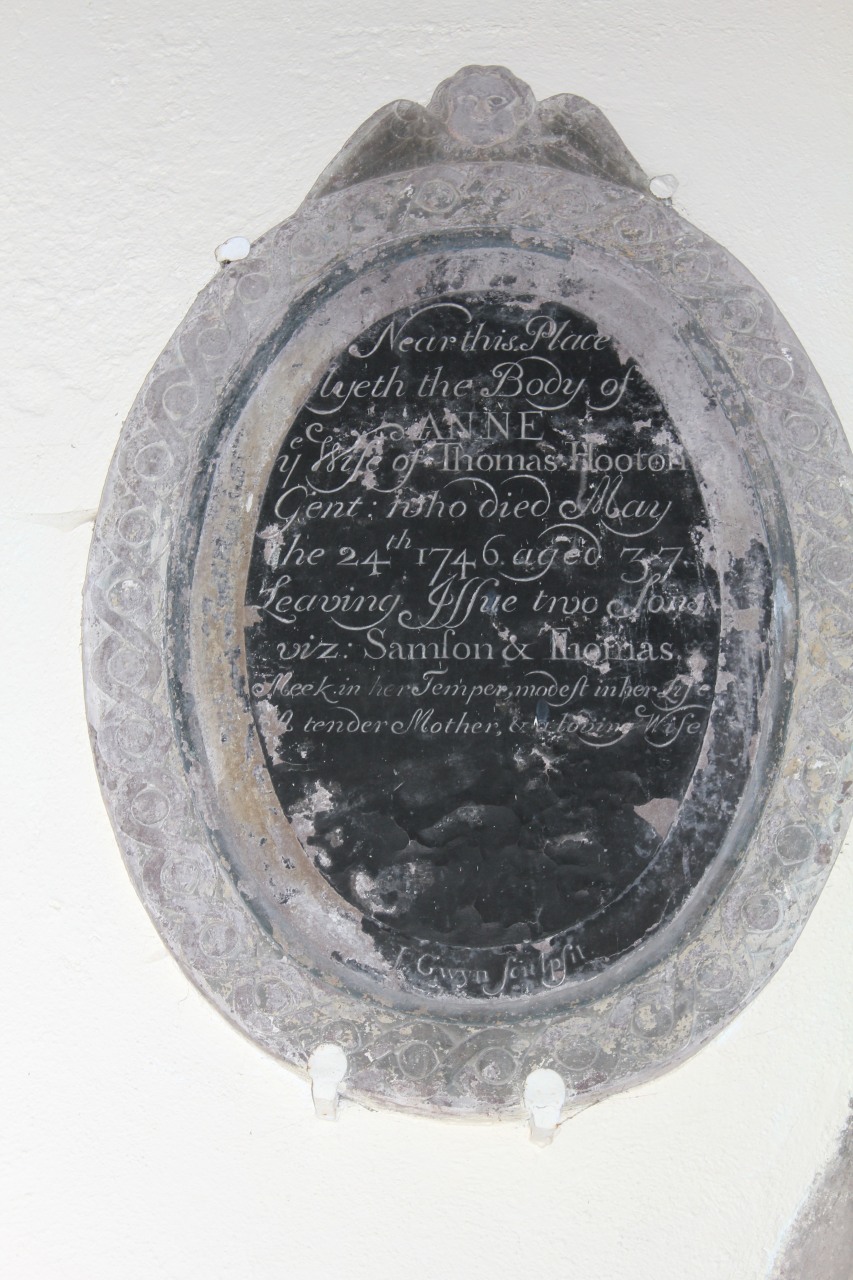 Near this Place
lyeth the Body of
ANNE
yᵉ Wife of Thomas Hooton
Gent: who died May
the 24ᵗʰ 1746. aged 37.
Leaving Iſſue two Sons
viz: Samſon & Thomas.
Meek in her Temper, modeſt in her Life
A tender Mother, & a loving Wife
Gwyn ſculpſit